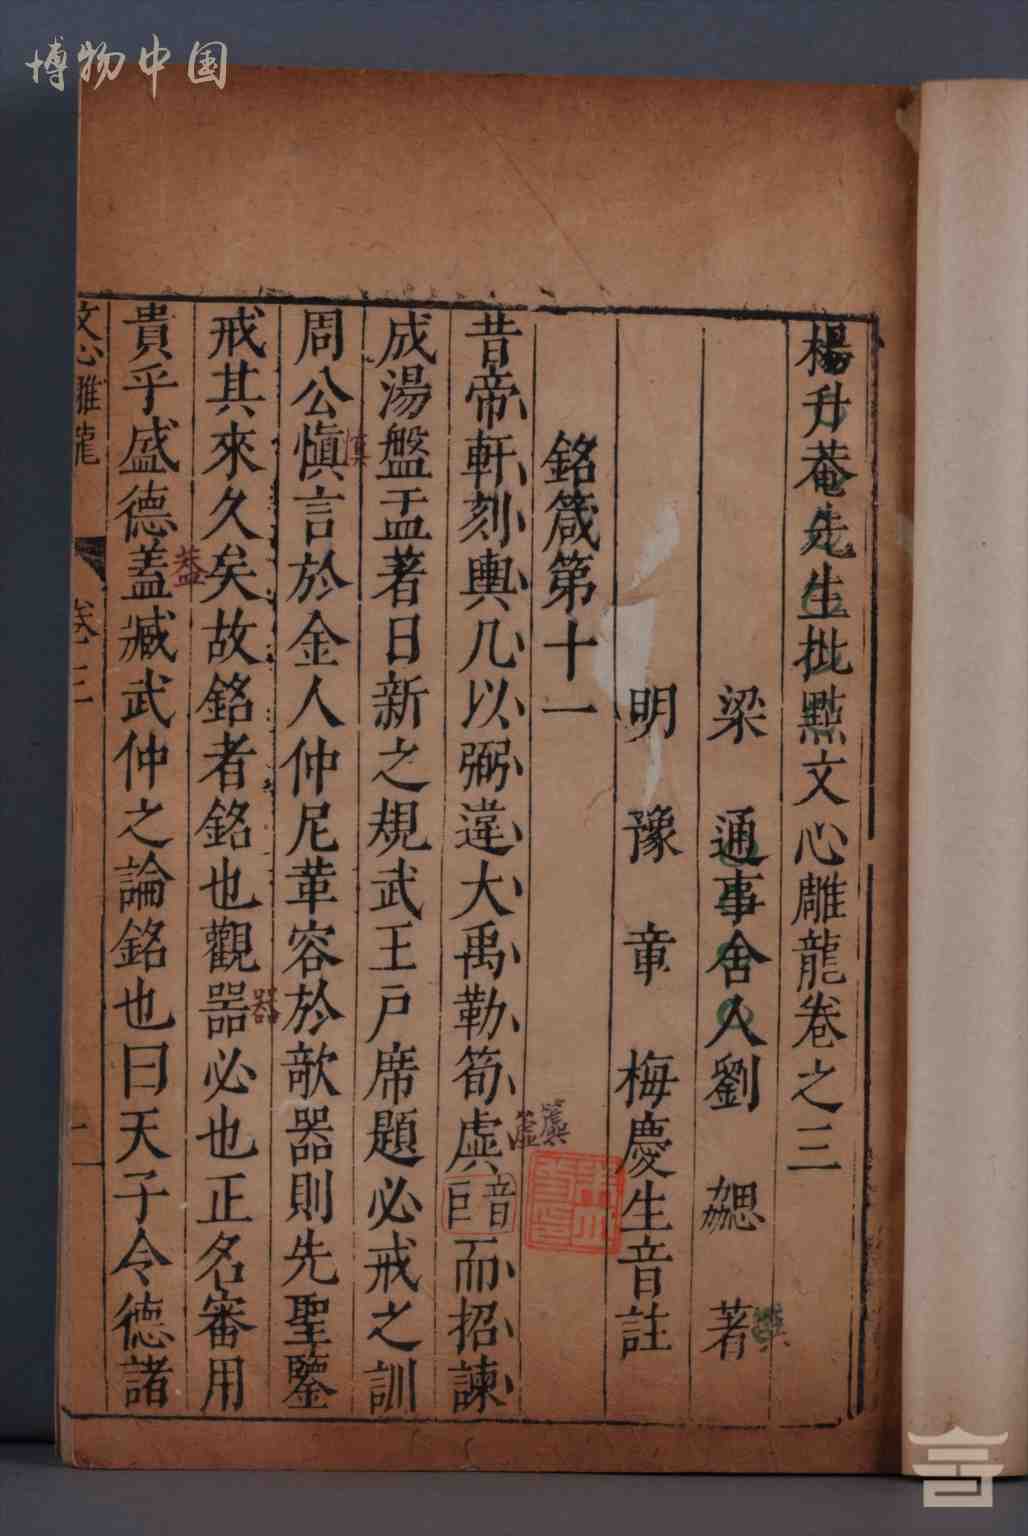 博物中国
楊升菴先生批點文心雕龍卷之三
梁 通事舍人劉 勰 著
撰
明 豫 章 梅慶生音註
銘箴第十一
昔帝軒刻輿几以弼違大禹勒筍虡音巨而招諫
簨
簴
成湯盤盂著日新之規武王戸席題必戒之訓
周公愼言於金人仲尼革容於欹器則先聖鑒
慎
戒其來久矣故銘者銘也觀器必也正名審用
器
貴乎盛德蓋臧武仲之論銘也曰天子令德諸
葢
文心雕龍 卷三 一